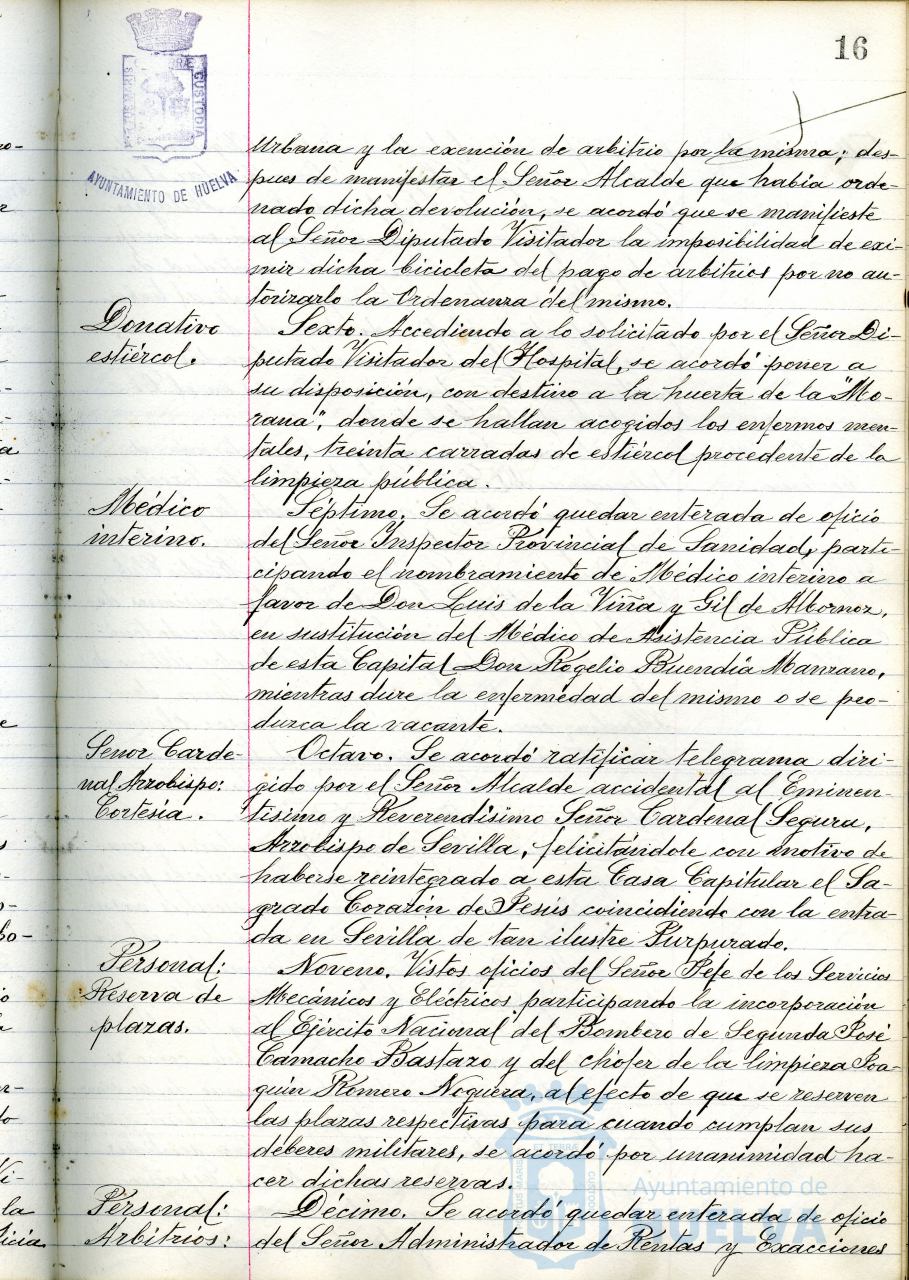 16
PORTUS MARIS ET TERRÆ CUSTODIA
AYUNTAMIENTO DE HUELVA
Urbana y la exención de arbitrio por la misma; des-
pues de manifestar el Señor Alcalde que había orde-
nado dicha devolución, se acordó que se manifieste
al Señor Diputado Visitador la imposibilidad de exi-
mir dicha bicicleta del pago de arbitrios por no au-
torizarlo la Ordenanza del mismo.
Donativo
estiércol.
Sexto. Accediendo a lo solicitado por el Señor Di-
putado Visitador del Hospital, se acordó poner a
su disposición, con destino a la huerta de la "Mo-
rana", donde se hallan acogidos los enfermos men-
tales, treinta carradas de estiércol procedente de la
limpieza pública.
Médico
interino.
Séptimo. Se acordó quedar enterada de oficio
del Señor Inspector Provincial de Sanidad, parti-
cipando el nombramiento de Médico interino a
favor de Don Luis de la Viña y Gil de Albornoz,
en sustitución del Médico de Asistencia Pública
de esta Capital Don Rogelio Buendía Manzano,
mientras dure la enfermedad del mismo o se peo-
durca la vacante.
Señor Carde-
nal Arzobispo:
Cortesía.
Octavo. Se acordó ratificar telegrama diri-
gido por el Señor Alcalde accidental al Eminen-
tísimo y Reverendísimo Señor Cardenal Segura,
Arzobispo de Sevilla, felicitándole con motivo de
haberse reintegrado a esta Casa Capitular el Sa-
grado Corazón de Jesús coincidiendo con la entra-
da en Sevilla de tan ilustre Purpurado.
Personal:
Reserva de
plazas.
Noveno. Vistos oficios del Señor Jefe de los Servicios
Mecánicos y Eléctricos participando la incorporación
al Ejército Nacional del Bombero de Segunda José
Camacho Bastazo y del chófer de la limpieza Joa-
quín Romero Noguera, al efecto de que se reserven
las plazas respectivas para cuando cumplan sus
deberes militares, se acordó por unanimidad ha-
cer dichas reservas.
Personal:
Arbitrios:
Décimo. Se acordó quedar enterada de oficio
del Señor Administrador de Rentas y Exacciones
Ayuntamiento de
HUELVA